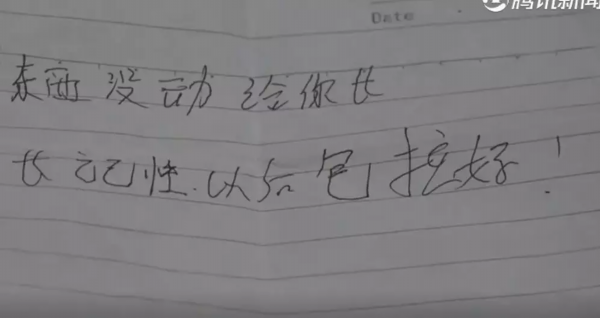 腾讯新闻
Date
东西没动给你长
长记性.以后包挖好!